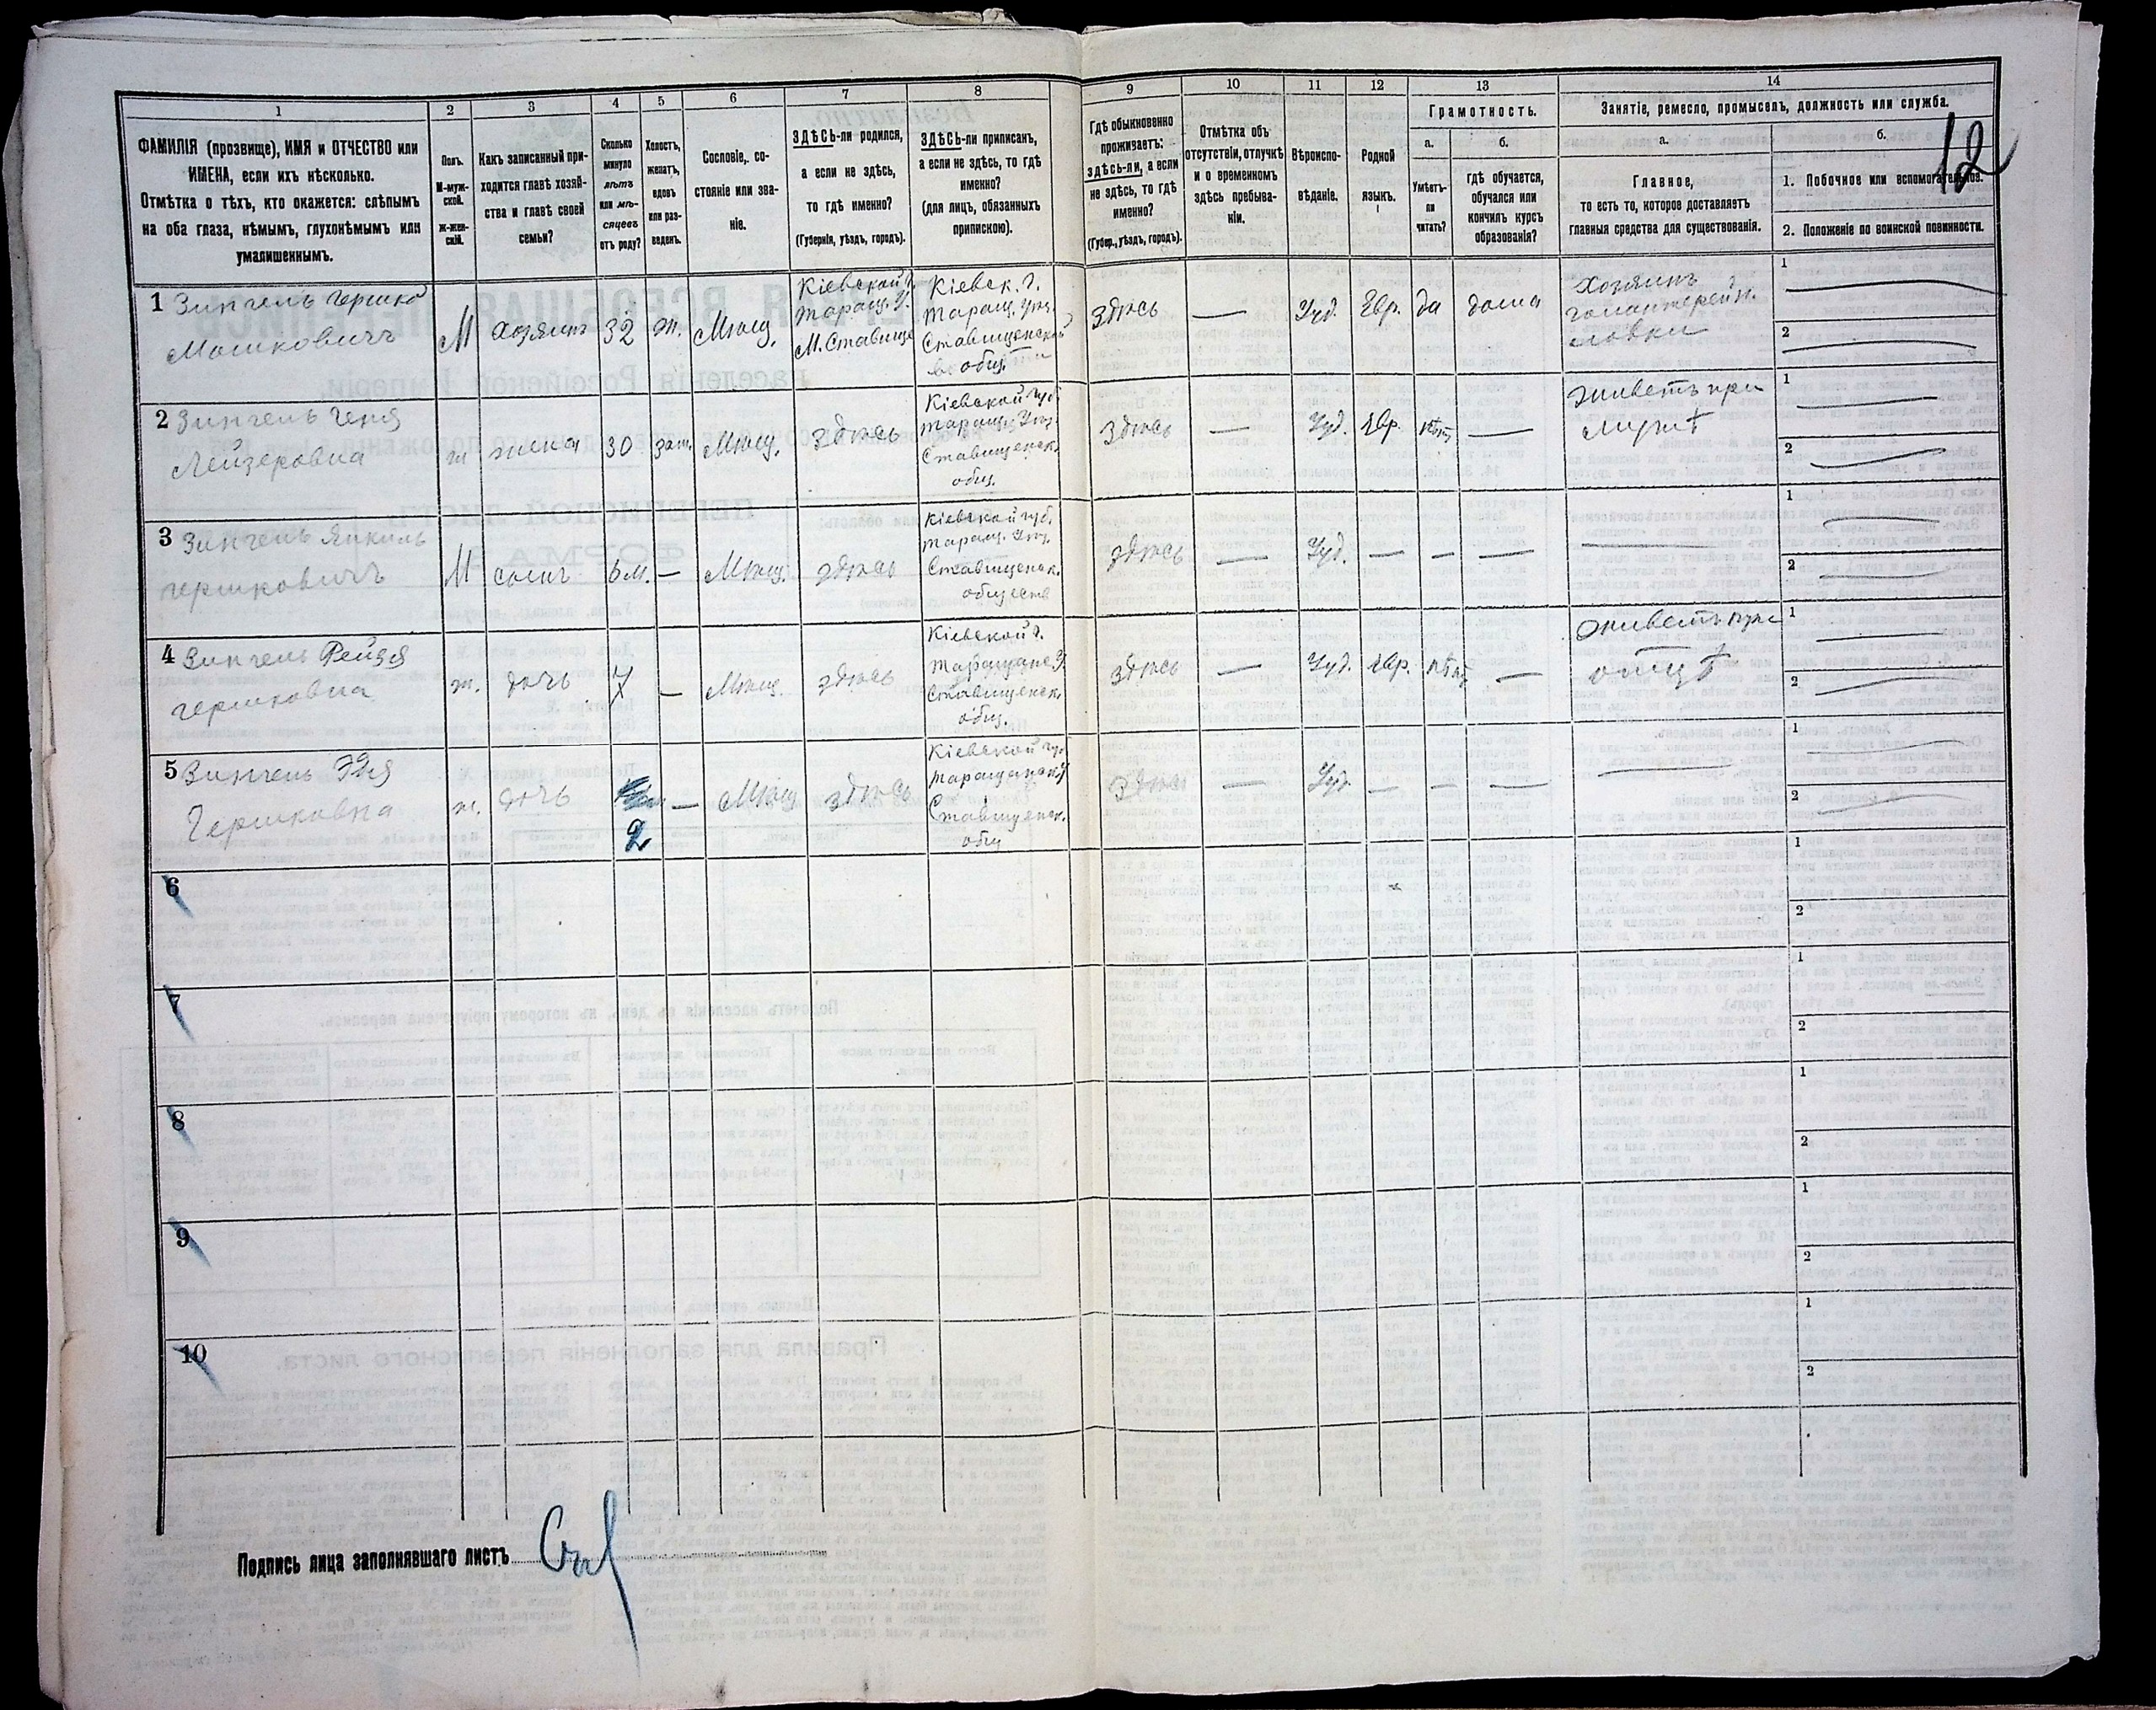 1
2
3
4
5
6
7
8
9
10
11
12
13
14
ФАМИЛІЯ (прозвище), ИМЯ и ОТЧЕСТВО или
ИМЕНА, если ихъ нѣсколько.
Отмѣтка о тѣхъ, кто окажется: слѣпымъ
на оба глаза, нѣмымъ, глухонѣмымъ или
умалишеннымъ.
Полъ.
М-муж-
ской.
Ж-жен-
скій.
Какъ записанный при-
ходится главѣ хозяй-
ства и главѣ своей
семьи?
Сколько
минуло
лѣтъ
или мѣ-
сяцевъ
отъ роду?
Холостъ,
женатъ,
вдовъ
или раз-
веденъ.
Сословіе, со-
стояніе или зва-
ніе.
ЗДѢСЬ-ли родился,
а если не здѣсь,
то гдѣ именно?
(Губернія, уѣздъ, городъ).
ЗДѢСЬ-ли приписанъ,
а если не здѣсь, то гдѣ
именно?
(для лицъ, обязанныхъ
припискою).
Гдѣ обыкновенно
проживаетъ:
здѣсь-ли, а если
не здѣсь, то гдѣ
именно?
(Губер., уѣздъ, городъ).
Отмѣтка объ
отсутствіи, отлучкѣ
и о временномъ
здѣсь пребыва-
ніи.
Вѣроиспо-
вѣданіе.
Родной
языкъ.
Грамотность.
а.
б.
Умѣетъ-
ли
читать?
гдѣ обучается,
обучался или
кончилъ курсъ
образованія?
Занятіе, ремесло, промыселъ, должность или служба.
а.
б.
Главное,
то есть то, которое доставляетъ
главныя средства для существованія.
1. Побочное или вспомогательное.
2. Положеніе по воинской повинности.
12
1 Зингель Гершко
Мошковичъ
М
хозяинъ
32
ж.
Мѣщ.
Кіевской г.
Таращ. у.
М. Ставище
Кіевск. г.
Таращ. уѣз.
Ставищенской
общ.
здѣсь
—
Іуд.
Евр.
да
дома
Хозяинъ
галантерейн.
лавки
1
2
2 Зингель Геня
Лейзеровна
ж
жена
30
зам.
Мѣщ.
здѣсь
Кіевской губ.
Таращ. Уѣз.
Ставищенск.
общ.
здѣсь
—
Іуд.
Евр.
нѣтъ
—
Живетъ при
мужѣ
1
2
3 Зингель Янкель
Гершковичъ
М
сынъ
6 м.
—
Мѣщ.
здѣсь
Кіевской губ.
Таращ. Уѣз.
Ставищенск.
обществ
здѣсь
—
Іуд.
—
—
—
1
2
4 Зингель Рейзя
Гершковна
ж.
дочь
7
—
Мѣщ.
здѣсь
Кіевской г.
Таращанс. У.
Ставищенск.
общ.
здѣсь
—
Іуд.
Евр.
нѣтъ
—
Живетъ при
отцѣ
1
2
5 Зингель Эдя
Гершковна
ж.
дочь
2
—
Мѣщ
здѣсь
Кіевской гу
Таращанск. У
Ставищенск.
общ
здѣсь
—
Іуд.
—
—
—
1
2
6
1
2
7
1
2
8
1
2
9
1
2
10
1
2
Подпись лица заполнявшаго листъ